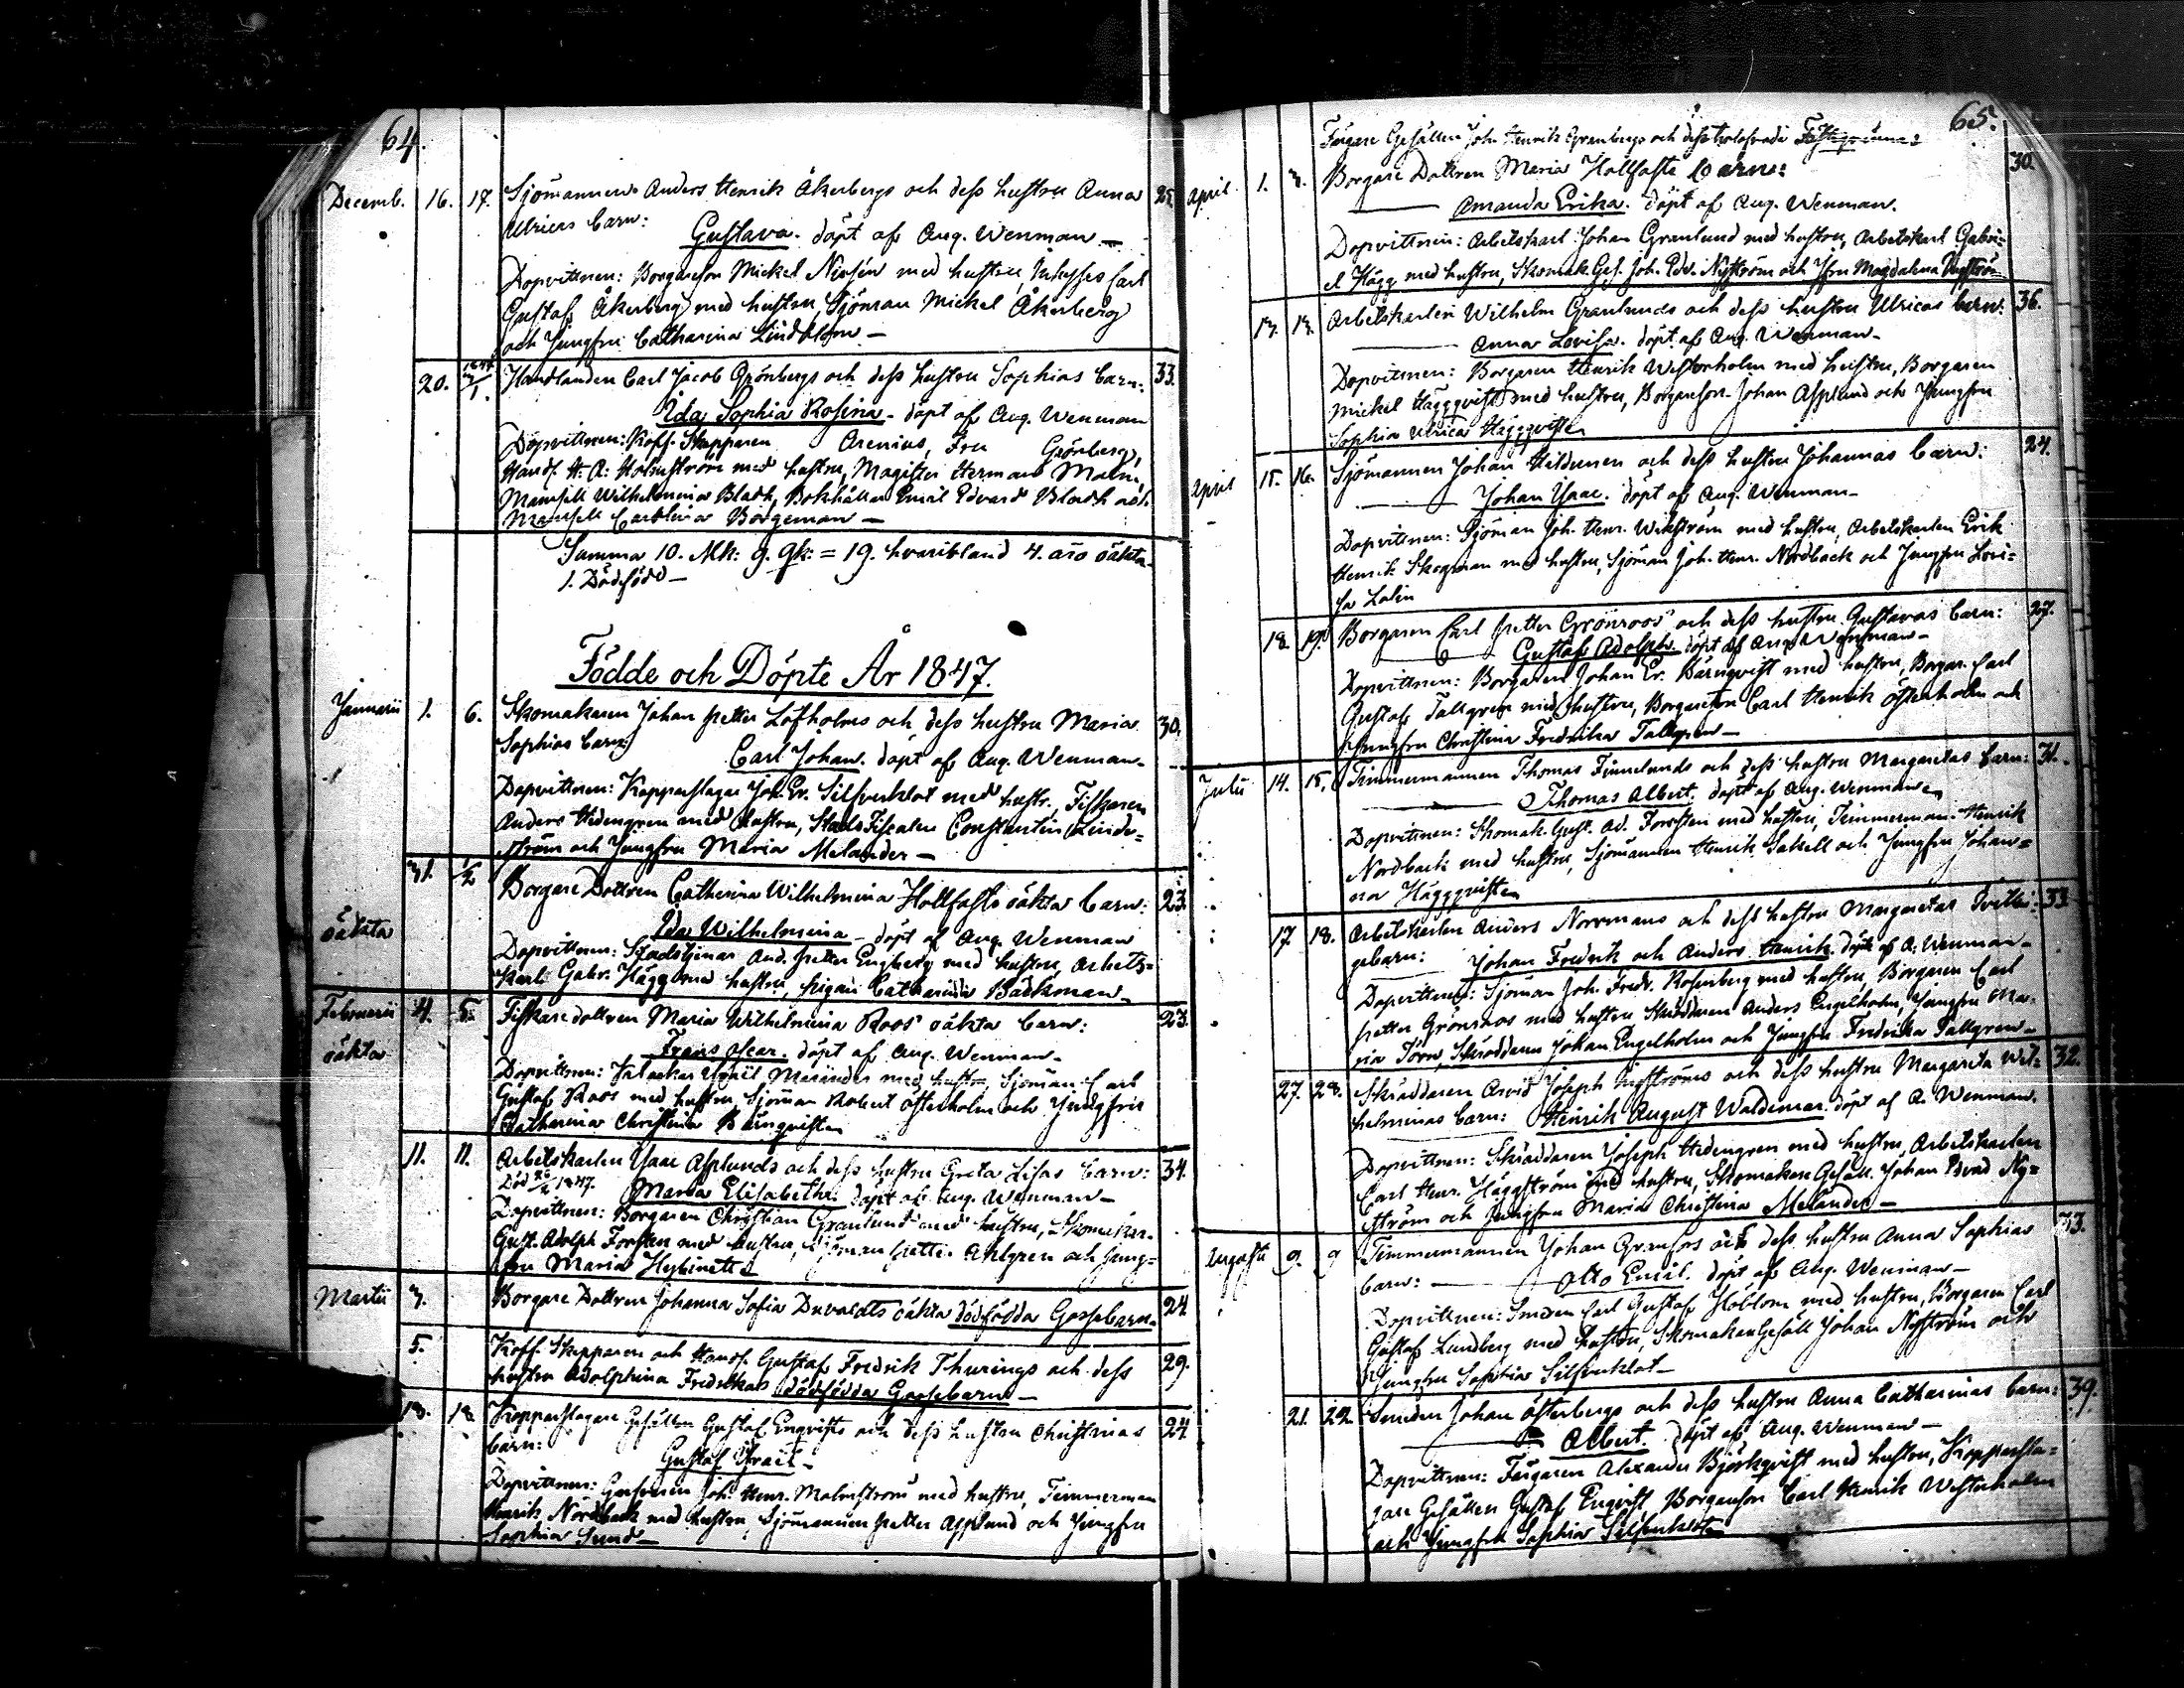 64.
Decemb. 16. 17. Sjömannen Anders Henrik Åkerbergs och dess hustru Anna 25.
Ulricas barn: Gustava. döpt af Aug. Wenman —
Dopvittnen: Borgareson Mickel med hustru, Carl
Gustaf Åkerberg med hustru, Sjöman Mickel Åkerberg
och Jungfru Catharina Lindblom —
20. Handlanden Carl Jacob Grönbergs och dess hustru Sophias barn: 33.
Ida Sophia Rosina. döpt af Aug. Wenman
Dopvittnen: Koff. Skepparen Arenius, Fru Grönberg,
Handl. H. A. Holmström med hustru, Magister Herman Malm,
Mamsell Wilhelmina Bladh, Bokhållar Emil Edvard Bladh och
Mamsell Carolina Borgeman —
Summa 10. Mk: 9. Qk: = 19. hvaribland 4. äro oäkta.
1. Dödfödd —
Födde och Döpte År 1847.
Januarii 1. 6. Skomakaren Johan Petter Löfholms och dess hustru Maria 30.
Sophias barn: Carl Johan. döpt af Aug. Wenman.
Dopvittnen: Kopparslagar Joh. Er. Silfverklot med hustr., Fiskaren
Anders Hedengren med hustru, Stads Fiscalen Constantin Lind-
ström och Jungfru Maria Melander —
31. 1/2 Borgare Dottren Catharina Wilhelmina Hallfasts oäkta barn: 23.
oäkta Ida Wilhelmina — döpt af Aug. Wenman
Dopvittnen: Stadstjenar And. Petter Engberg med hustru, Arbets-
karl Gabr. Hägg med hustru, Pigan Catharina Backman.
Februarii 4. 5. Fiskaredottren Maria Wilhelmina Roos' oäkta barn: 23.
oäkta Frans Oscar. döpt af Aug. Wenman.
Dopvittnen: med hustru, Sjöman Carl
Gustaf Roos med hustru Sjöman Robert Österholm och Jungfru
Catharina Christina Bärnqvist
11. 11. Arbetskarlen Isaac Asplunds och dess hustru Greta Lisas barn: 34.
Död 1847. Maria Elisabeth. döpt af Aug. Wenman —
Dopvittnen: Borgaren Christian Granlund med hustru, Skomakar.
Gust. Adolph Forsten med hustru, Sjöman Petter Ahlgren och Jung-
fru Maria
Martii 3. Borgare Dottren Johanna Sofia oäkta dödfödda Gossebarn. 24
5. Koff. Skepparen och Handl. Gustaf Fredrik Thurings och dess 29.
hustru Adolphina Fredrikas dödfödda Gossebarn —
18. 18 Kopparslagare Gesällen Gustaf Engvists och dess hustru Christinas 24
barn: Gustaf —
Dopvittnen: Joh. Henr. Malmström med hustru, Timmerman
Henrik Nordback med hustru, Sjömannen Petter Asplund och Jungfru
Sophia Sund —
65.
Färgare Gesällen Joh. Henrik Granbergs och dess trolofvade
April. 1. 3. Borgare Dottren Maria Hallfasts barn: 30.
Amanda Erika. döpt af Aug. Wenman.
Dopvittnen: Arbetskarl Johan Granlund med hustru, Arbetskarl Gabri-
el Hägg med hustru, Skomak. Ges. Joh. Edv. Nyström och Jfru Magdalena
13. 13. Arbetskarlen Wilhelm Granlunds och dess hustru Ulricas barn: 36.
Anna Lovisa. döpt af Aug. Wenman —
Dopvittnen: Borgaren Henrik Westerholm med hustru, Borgaren
Mickel Häggqvist med hustru, Borgareson Johan Asplund och Jungfru
Sophia Ulrica Häggqvist
April 15. 16. Sjömannen Johan Hildunen och dess hustru Johannas barn: 24.
Johan Isaac. döpt af Aug. Wenman —
Dopvittnen: Sjöman Joh. Henr. Wikström med hustru, Arbetskarlen Erik
Henrik Skogman med hustru, Sjöman Joh. Henr. Nordback och Jungfru Lovi-
sa
18. 19. Borgaren Carl Petter Grönroos' och dess hustru Gustavas barn: 27.
Gustaf Adolph. döpt af Aug. Wenman —
Dopvittnen: Borgaren Johan Er. Bärnqvist med hustru, Borgar. Carl
Gustaf Tallgren med hustru, Borgareson Carl Henrik Österholm och
Jungfru Christina Fredrika Tallgren —
Julii 14. 15. Timmermannen Thomas Finnelunds och dess hustru Margaretas barn: 31.
Thomas Albert. döpt af Aug. Wenman
Dopvittnen: Skomak. Gust. Ad. Forsten med hustru, Timmerman Henrik
Nordback med hustru, Sjömannen Henrik och Jungfru Johan-
na Häggqvist
17. 18. Arbetskarlen Anders Norrmans och dess hustru Margaretas Tvillin- 33.
gebarn: Johan Fredrik och Anders Henrik. döpte af A. Wenman —
Dopvittnen: Sjöman Joh. Fredr. Rosenberg med hustru, Borgaren Carl
Petter Grönroos med hustru Skräddaren Anders Engelholm, Jungfru Ma-
ria Törn, Skräddaren Johan Engelholm och Jungfru Fredrika Tallgren —
27. 28. Skräddaren Arvid Joseph Nyströms och dess hustru Margareta Wil- 32.
helminas barn: Henrik August Waldemar. döpt af A. Wenman.
Dopvittnen: Skräddaren Joseph Hedengren med hustru, Arbetskarlen
Carl Henr. Häggström med hustru, Skomakare Gesäll. Johan Edvard Ny-
ström och Jungfru Maria Christina Melander —
Augusti 9. 9 Timmermannen Johan Granfors och dess hustru Anna Sophias 33.
barn: — Otto Emil. döpt af Aug. Wenman —
Dopvittnen: Smeden Carl Gustaf Hoblom med hustru, Borgaren Carl
Gustaf Lundberg med hustru, Skomakare Gesäll Johan Nyström och
Jungfru Sophia Silfverklot —
21. 22. Smeden Johan Österbergs och dess hustru Anna Catharinas barn: 39.
Albert döpt af Aug. Wenman —
Dopvittnen: Färgaren Alexander Björkqvist med hustru, Kopparsla-
gare Gesällen Gustaf Engvist, Borgareson Carl Henrik Westerholm
och Jungfru Sophia Silfverklot